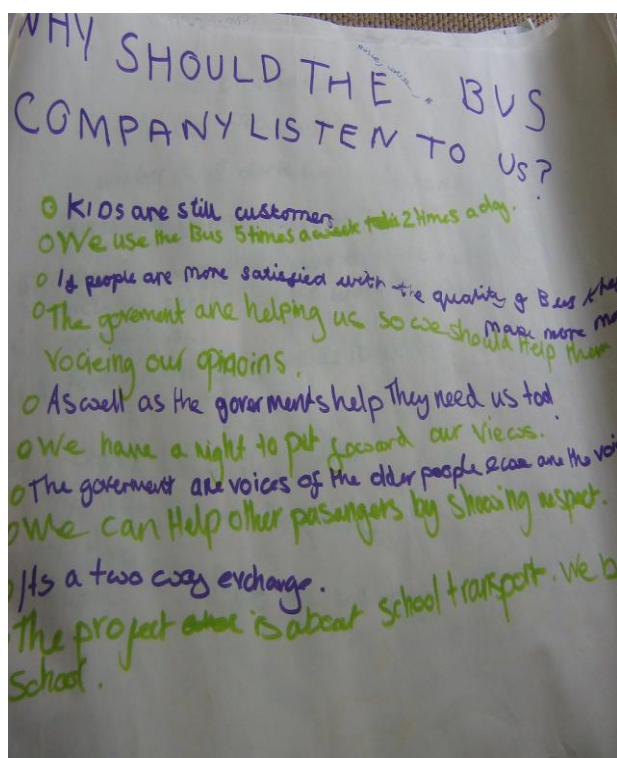 WHY SHOULD THE BUS
COMPANY LISTEN TO US?
KIDs are still customers
We use the Bus 5 times a week 2 times a day.
If people are more satisfied with the quality of Bus they
make more mo
The goverment are helping us so we should Help them
Vocieing our opinoins.
Aswell as the goverments help They need us too!
We have a right to put forward our views.
The goverment are voices of the older people are the voi
We can Help other pasangers by showing respect.
Its a two way exchange.
The project is about school transport. We b
School.